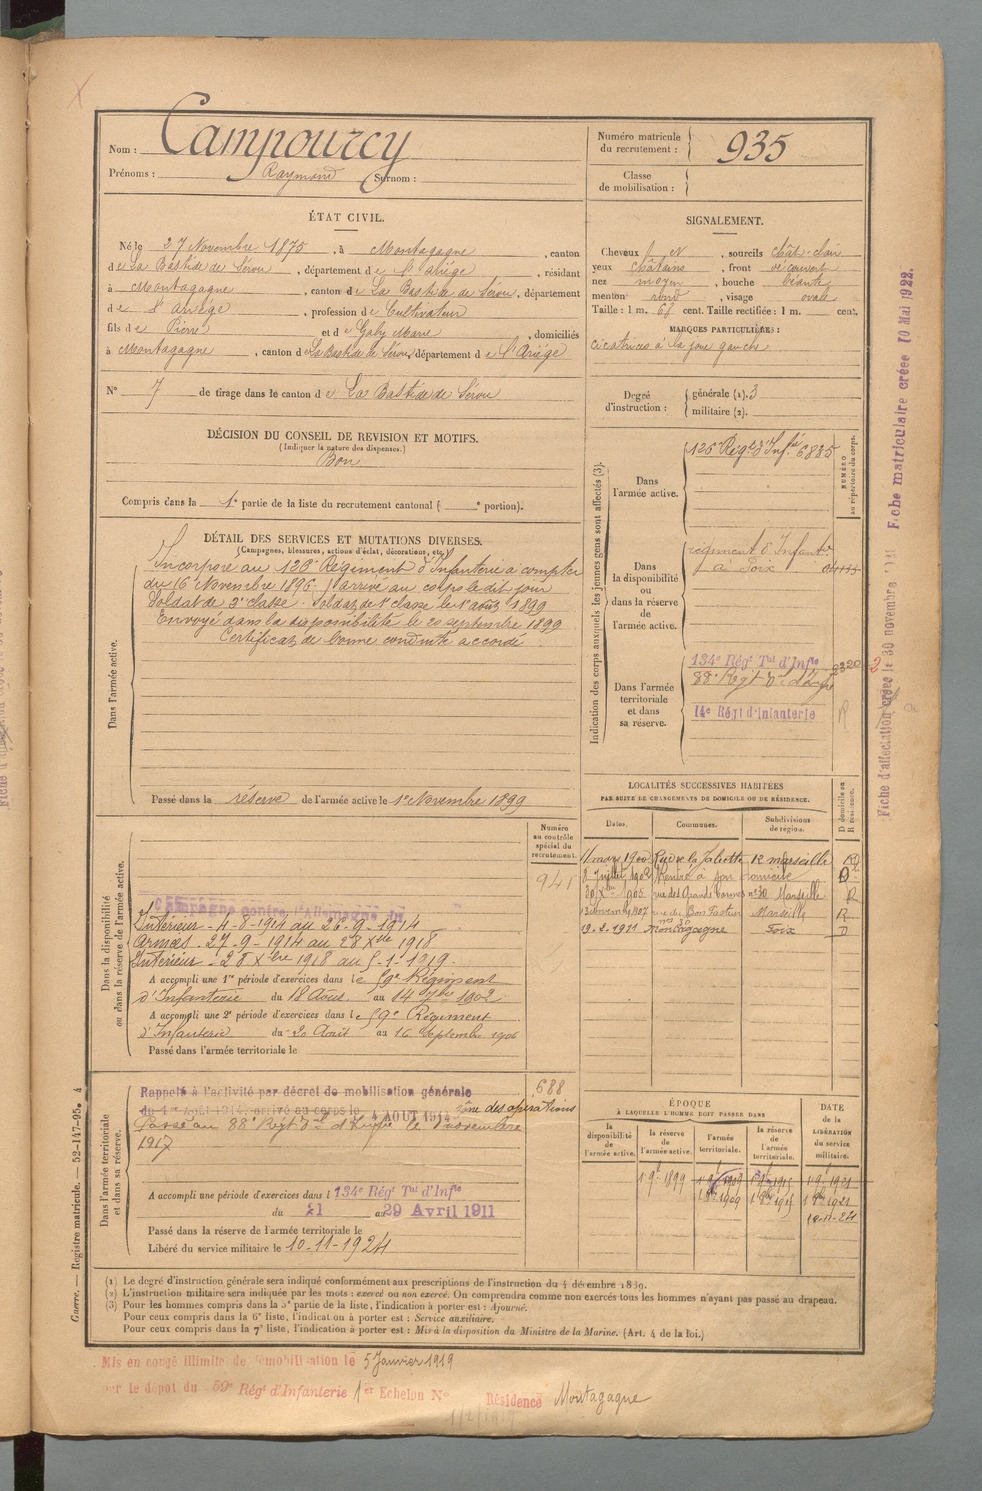 Nom : Campourcy
Prénoms : Raymond Surnom :
Numéro matricule
du recrutement : 935
Classe
de mobilisation :
ÉTAT CIVIL.
Né le 27 Novembre 1875, à Montagagne, canton
de La Bastide de Sérou, département de l'Ariège, résidant
à Montagagne, canton de La Bastide de Sérou, département
de l'Ariège, profession de Cultivateur
fils de Pierre et de Galy Marie, domiciliés
à Montagagne, canton de La Bastide de Sérou, département de l'Ariège
SIGNALEMENT.
Cheveux et, sourcils chât-clair
yeux châtains, front découvert
nez moyen, bouche béante
menton rond, visage ovale
Taille : 1 m. 68 cent. Taille rectifiée : 1 m. cent.
MARQUES PARTICULIÈRES :
cicatrices à la joue gauche
N° 7 de tirage dans le canton de La Bastide de Sérou
Degré
d'instruction :
générale (1). 3
militaire (2).
DÉCISION DU CONSEIL DE REVISION ET MOTIFS.
(Indiquer la nature des dispenses.)
Bon
Compris dans la 1e partie de la liste du recrutement cantonal ( e portion).
DÉTAIL DES SERVICES ET MUTATIONS DIVERSES.
(Campagnes, blessures, actions d'éclat, décorations, etc.)
Dans l'armée active.
Incorporé au 126e Régiment d'Infanterie à compter
du 16 Novembre 1896. arrivé au corps ledit jour
Soldat de 2e classe. Soldat de 1e classe le 1e août 1899
Envoyé dans la disponibilité le 20 septembre 1899
Certificat de bonne conduite accordé
Passé dans la réserve de l'armée active le 1er Novembre 1899
Indication des corps auxquels les jeunes gens sont affectés (3).
NUMÉRO
au répertoire du corps.
Dans
l'armée active.
126 Régt d'Infie 6835
Dans
la disponibilité
ou
dans la réserve
de
l'armée active.
régiment d'Infantie
à Foix
Dans l'armée
territoriale
et dans
sa réserve.
134e Régt Tal d'Infie
88e Régt
14e Régt d'Infanterie
R
LOCALITÉS SUCCESSIVES HABITÉES
PAR SUITE DE CHANGEMENTS DE DOMICILE OU DE RÉSIDENCE.
Dates. Communes. Subdivisions
de région.
D domicile ou
R résidence.
11 mars 1900 Rue de la Joliette, 12 Marseille
8 Juillet 1902 Rentré à son domicile D
rue des Grands Carmes n°30 Marseille R
13 Novembre 1907 rue du Bon Pasteur Marseille R
19.2.1921 Montagagne Foix D
Numéro
au contrôle
spécial du
recrutement.
941
Dans la disponibilité
ou dans la réserve de l'armée active.
Campagne contre l'Allemagne
Intérieur - 4-8-1914 au 26-9-1914
Armées - 27-9-1914 au 28 Xbre 1918
Intérieur - 28 Xbre 1918 au 5-1-1919.
A accompli une 1re période d'exercices dans le 59e Régiment
d'Infanterie du 18 Août au 14 7bre 1902
A accompli une 2e période d'exercices dans le 59e Régiment
d'Infanterie du 20 Août au 16 Septembre 1906
Passé dans l'armée territoriale le
688
Dans l'armée territoriale
et dans sa réserve.
Rappelé à l'activité par décret de mobilisation générale
du 1er Août 1914, arrivé au corps le 4 AOUT 1914 zône des opérations
Passé au 88e Régt novembre
1917
A accompli une période d'exercices dans l 134e Régt Tal d'Infie
du 21 au 29 Avril 1911
Passé dans la réserve de l'armée territoriale le
Libéré du service militaire le 10-11-1924
ÉPOQUE
À LAQUELLE L'HOMME DOIT PASSER DANS
la
disponibilité
de
l'armée active.
la réserve
de
l'armée active.
l'armée
territoriale.
la réserve
de
l'armée
territoriale.
DATE
de la
LIBÉRATION
du service
militaire.
1.9e 1899 1.9e 1909 1915 1.9e 1921
1909 1915 1921
10-11-24
(1) Le degré d'instruction générale sera indiqué conformément aux prescriptions de l'instruction du 4 décembre 1889.
(2) L'instruction militaire sera indiquée par les mots : exercé ou non exercé. On comprendra comme non exercés tous les hommes n'ayant pas passé au drapeau.
(3) Pour les hommes compris dans la 5e partie de la liste, l'indication à porter est : Ajourné.
Pour ceux compris dans la 6e liste, l'indication à porter est : Service auxiliaire.
Pour ceux compris dans la 7e liste, l'indication à porter est : Mis à la disposition du Ministre de la Marine. (Art. 4 de la loi.)
Mis en congé illimité de démobilisation le 5 Janvier 1919
par le dépôt du 59e Régt d'Infanterie 1er Echelon N° Résidence Montagagne
Guerre. — Registre matricule. — 52-147-95. 4
Fiche d'affectation créée le 30 novembre Fiche matriculaire créée 10 Mai 1922.